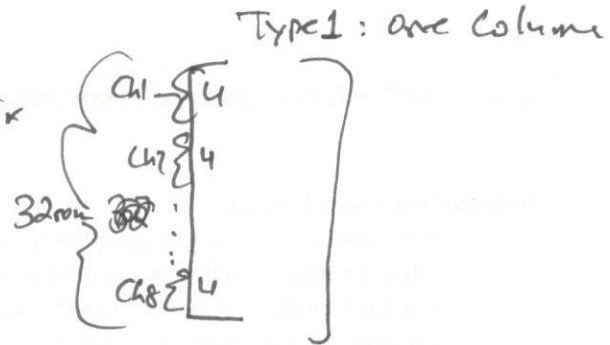 Type1: one Column
Ch1 4
Ch2 4
32row
Ch8 4